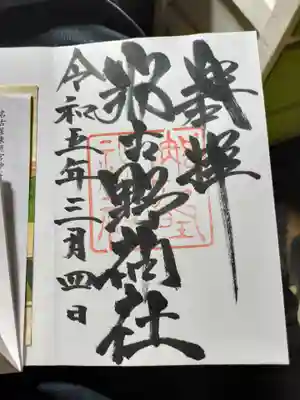 奉拝
那古野神社
令和五年三月四日